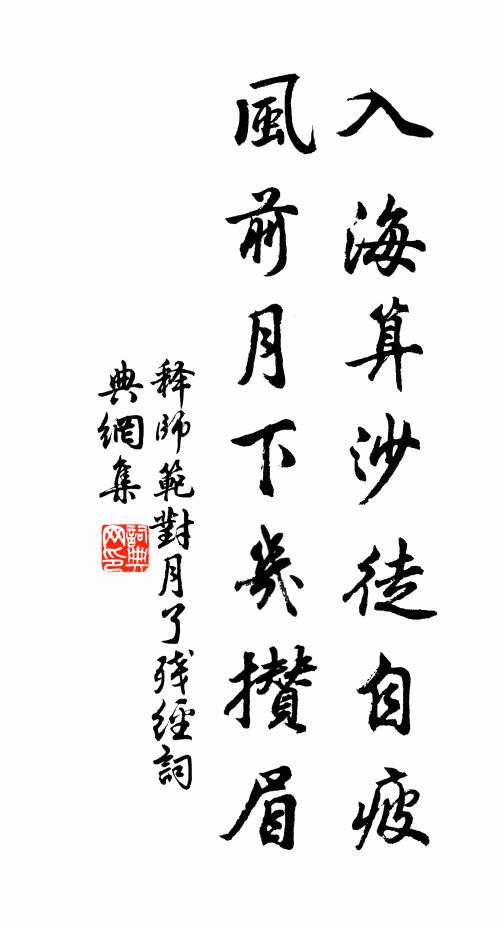 入海算沙徒自疲
風前月下幾攢眉
释師範對月了残經詞
典網集
詞典網印